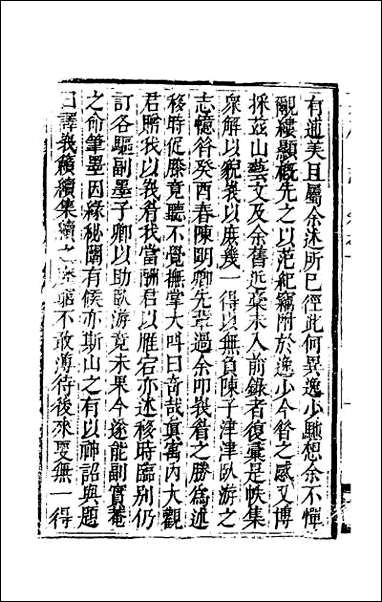 有逝美且屬余述所已徑此何異逸少馳想余不憚
覼縷顯概先之以范紀竊附於逸少今昝之感又博
採茲山藝文及余舊近藁未入前錄者復彙足帙集
衆解以貌峩以庶幾一得以無負陳子津津臥游之
志憶昝癸酉春陳明卿先軰過余叩峩眉之勝為述
移時促膝竟聽不覺撫掌大呌曰奇哉真寓內大觀
君貽我以峩眉我當酬君以雁宕亦述移時臨別仍
訂各驅副墨子卿以助臥游竟未果今遂能副實菴
之俞筆墨因緣秘闢有候亦斯山之有以神詔與題
曰譯峩籟續集續之無窮不敢薄待後來要無一得